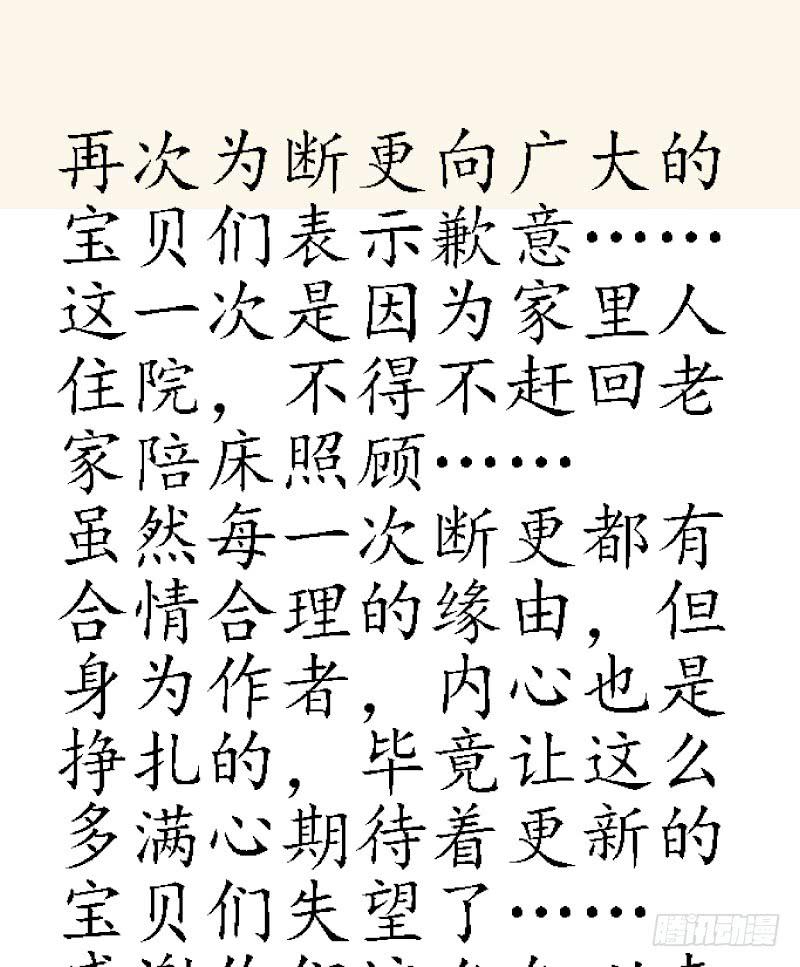 再次为断更向广大的
宝贝们表示歉意……
这一次是因为家里人
住院，不得不赶回老
家陪床照顾……
虽然每一次断更都有
合情合理的缘由，但
身为作者，内心也是
挣扎的，毕竟让这么
多满心期待着更新的
宝贝们失望了……
腾讯动漫